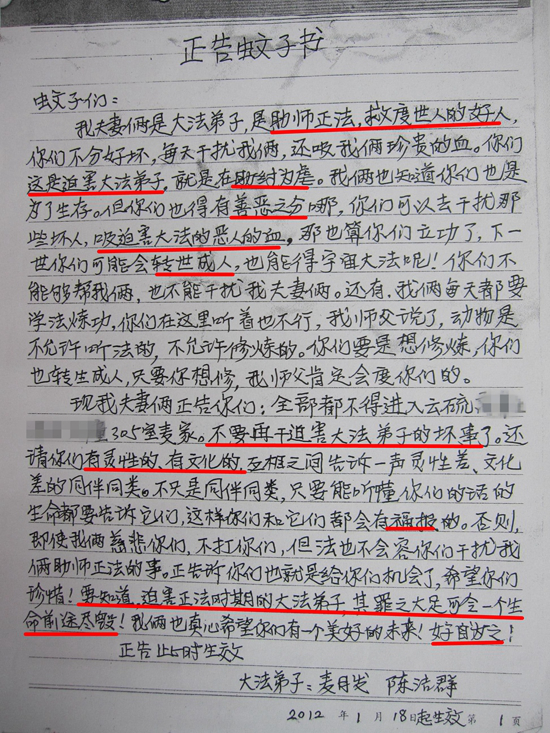 正告蚊子书
蚊子们：
我夫妻俩是大法弟子，是助师正法，救度世人的好人，
你们不分好坏，每天干扰我俩，还吸我俩珍贵的血。你们
这是迫害大法弟子，就是在助纣为虐。我俩也知道你们也是
为了生存。但你们也得有善恶之分哪，你们可以去干扰那
些坏人，吸迫害大法的恶人的血。那也算你们立功了，下一
世你们可能会转世成人，也能得宇宙大法呢！你们不
能够帮我俩，也不能干扰我夫妻俩。还有，我俩每天都要
学法炼功，你们在这里听着也不行，我师父说了，动物是
不允许听法的，不允许修炼的。你们要是想修炼，你们
也转生成人，只要你想修，我师父肯定会度你们的。
现我夫妻俩正告你们：全部都不得进入云硫
305室麦家。不要再干迫害大法弟子的坏事了。还
请你们有灵性的，有文化的，互相之间告诉一声灵性差、文化
差的同伴同类。不只是同伴同类，只要能听懂你们的话的
生命都要告诉它们，这样你们和它们都会有福报的。否则，
即使我俩慈悲你们，不打你们，但法也不会容你们干扰我
俩助师正法的事。正告诉你们也就是给你们机会了，希望你们
珍惜！要知道，迫害正法时期的大法弟子，其罪之大足可令一个生
命前途尽毁！我俩也真心希望你们有一个美好的未来！好自为之！
正告此时生效
大法弟子：麦月发 陈洁群
2012 年 1 月 18日起生效 第 1 页